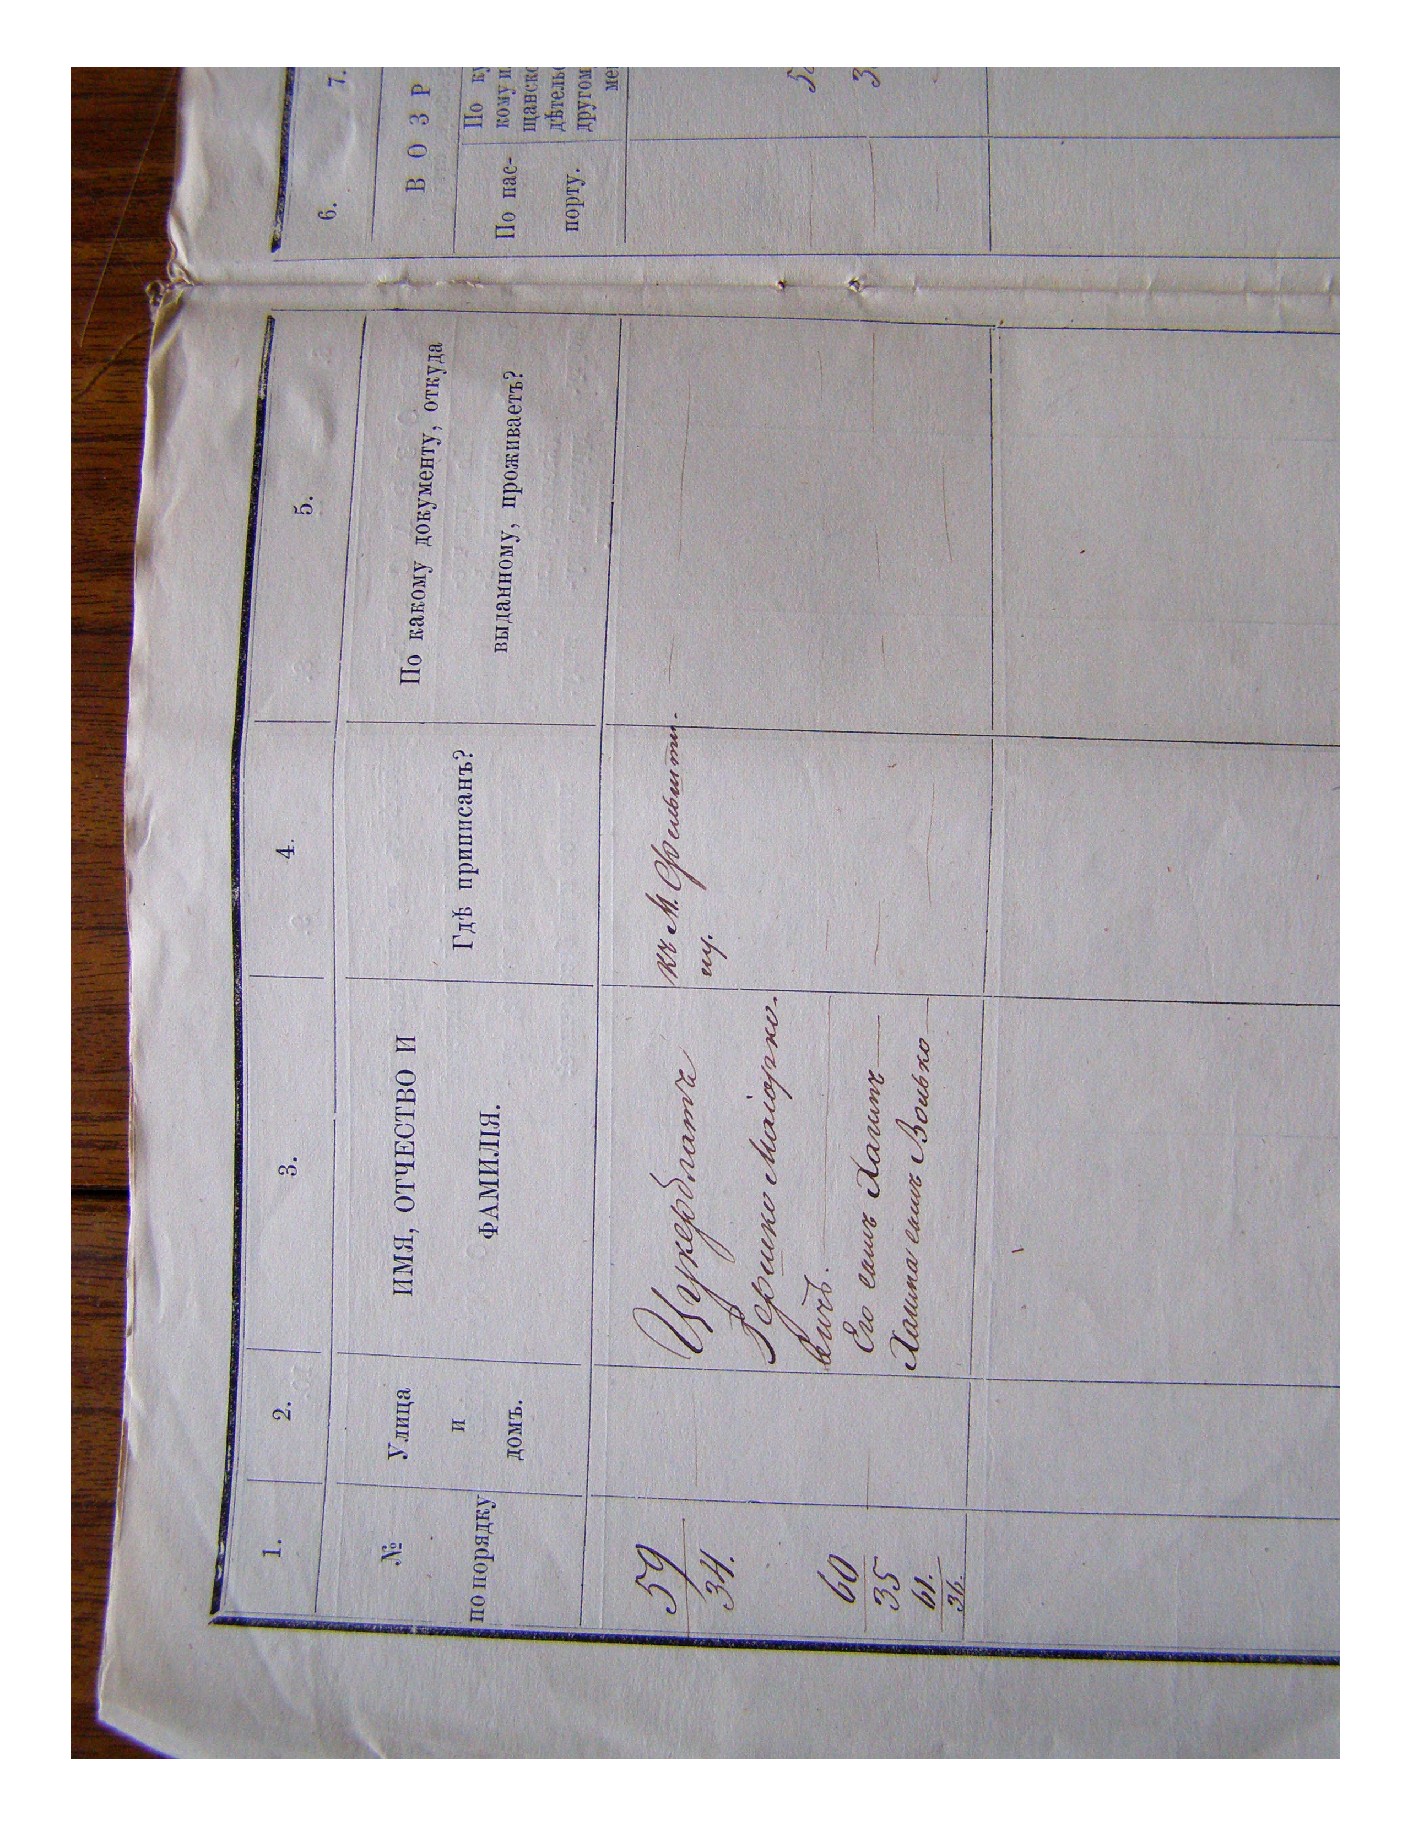 1.
2.
3.
4.
5.
6.
7.
№
по порядку
Улица
и
домъ.
ИМЯ, ОТЧЕСТВО И
ФАМИЛІЯ.
Гдѣ приписанъ?
По какому документу, откуда
выданному, проживаетъ?
В О З Р
По пас-
порту.
По ку
кому и
щанско
дѣтельс
другом
мен
59
34.
Цукерблатъ
Гершко Маіорко-
вичъ.
къ М. Фельшти-
ну.
60
35
Его сынъ Хаимъ
61.
36.
Хаима сынъ Волько